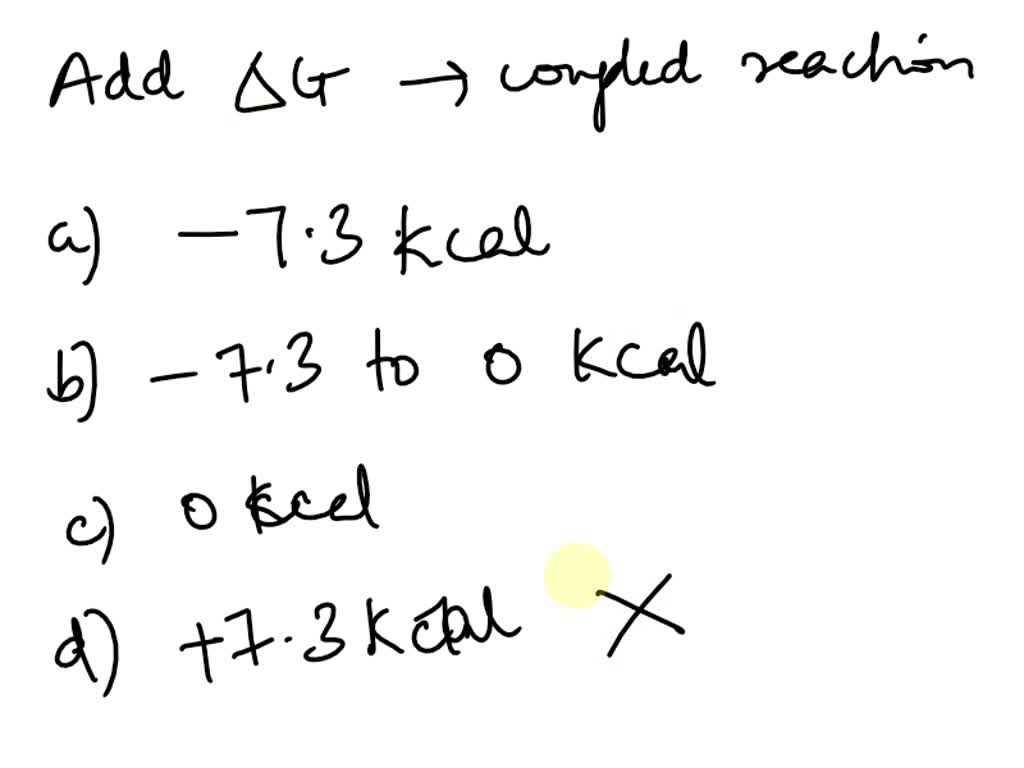 Add ΔG → coupled reaction
a) -7.3 kcal
b) -7.3 to 0 kcal
c) 0 kcal
d) +7.3 kcal X